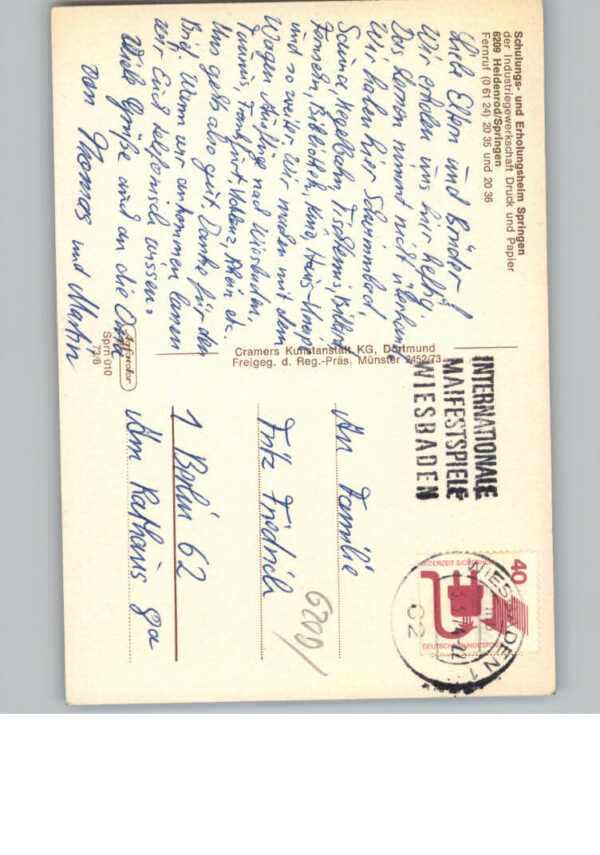 Schulungs- und Erholungsheim Springen
der Industriegewerkschaft Druck und Papier
6209 Heidenrod/Springen
Fernruf (0 61 24) 20 35 und 20 36
Liebe Eltern und Brüder!
Wir erholen uns hier heftig.
Das Lernen nimmt nicht überhand
Wir haben hier Schwimmbad,
Sauna, Kegelbahn, Tischtennis, Billard
Fernsehn, Bibliothek, Kino,
und so weiter. Wir machen mit dem
Wagen Ausflüge nach Wiesbaden,
Taunus, Frankfurt, Koblenz, Rhein etc.
Uns gehts also gut. Danke für den
Brief. Wenn wir ankommen lassen
wir Euch telefonisch wissen.
Viele Grüße auch an die Oma
von Thomas und Martin
Cramers Kunstanstalt KG, Dortmund
Freigeg. d. Reg.-Präs. Münster 2452/73
Sprn 010
73/8
INTERNATIONALE
MAIFESTSPIELE
WIESBADEN
40
JEDERZEIT SICHERHEIT
DEUTSCHE BUNDESPOST
WIESBADEN 1
An Familie
Fritz Friedrich
1 Berlin 62
Am Rathaus 9a